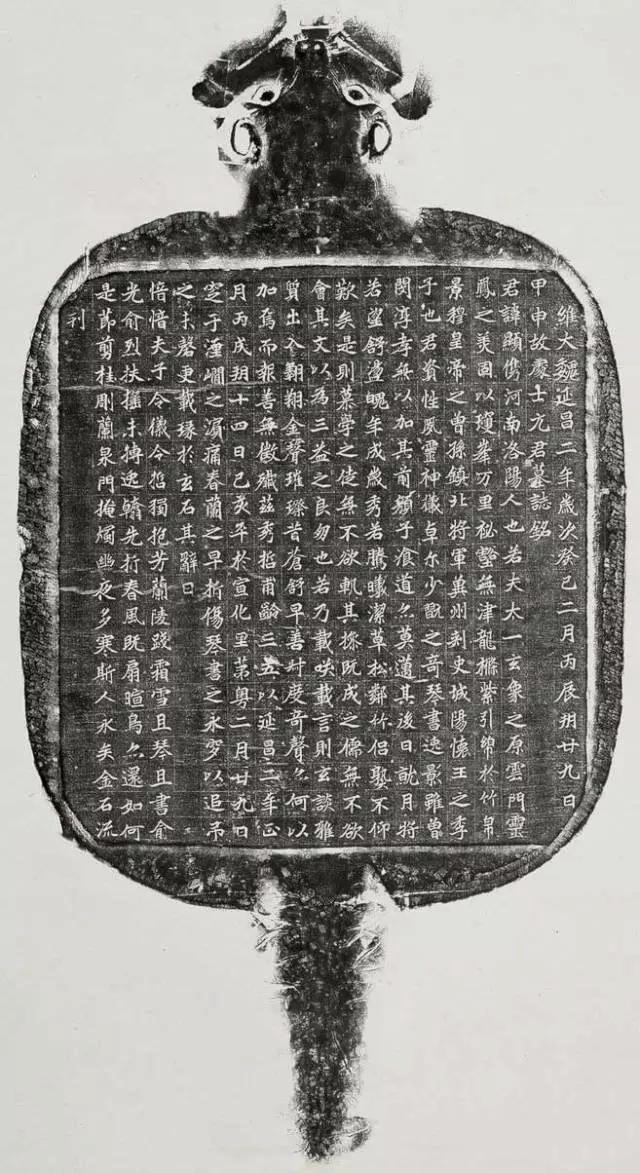 維大魏延昌二年歲次癸巳二月丙辰朔廿九日
甲申故處士元君墓誌銘
君諱顯儁河南洛陽人也若夫太一玄象之原雲門靈
鳳之美固以瓊峯万里祕壑無津龍檦紫引綿於竹帛
景穆皇帝之曾孫鎮北將軍冀州刺史城陽懷王之季
子也君資性夙靈神儀卓尒少翫之奇琴書逸影雖曾
閔淳孝無以加其前顏子飡道亦莫邁其後日就月將
若望舒盪魄年成歲秀若騰曦潔草松鄰竹侶熟不仰
歎矣是則慕學之徒無不欲軌其操既成之儒無不欲
會其文以為三益之良朋也若乃載咲載言則玄談雅
質出入翺翔金聲璀璨昔蒼舒早善叶慶奇聲亦何以
加焉而報善無徵殲兹秀哲甫齡三五以延昌二年正
月丙戌朔十四日己亥卒於宣化里第粵二月廿九日
窆于瀍澗之濱痛春蘭之早折傷琴書之永穸以追弔
之未罄更載琢於玄石其辭曰
愔愔夫子令儀令哲獨抱芳蘭陵踐霜雪且琴且書俞
光俞烈扶搖未摶逸轡先折春風既扇暄鳥亦還如何
是節剪桂刪蘭泉門掩燭幽夜多寒斯人永矣金石流
刊